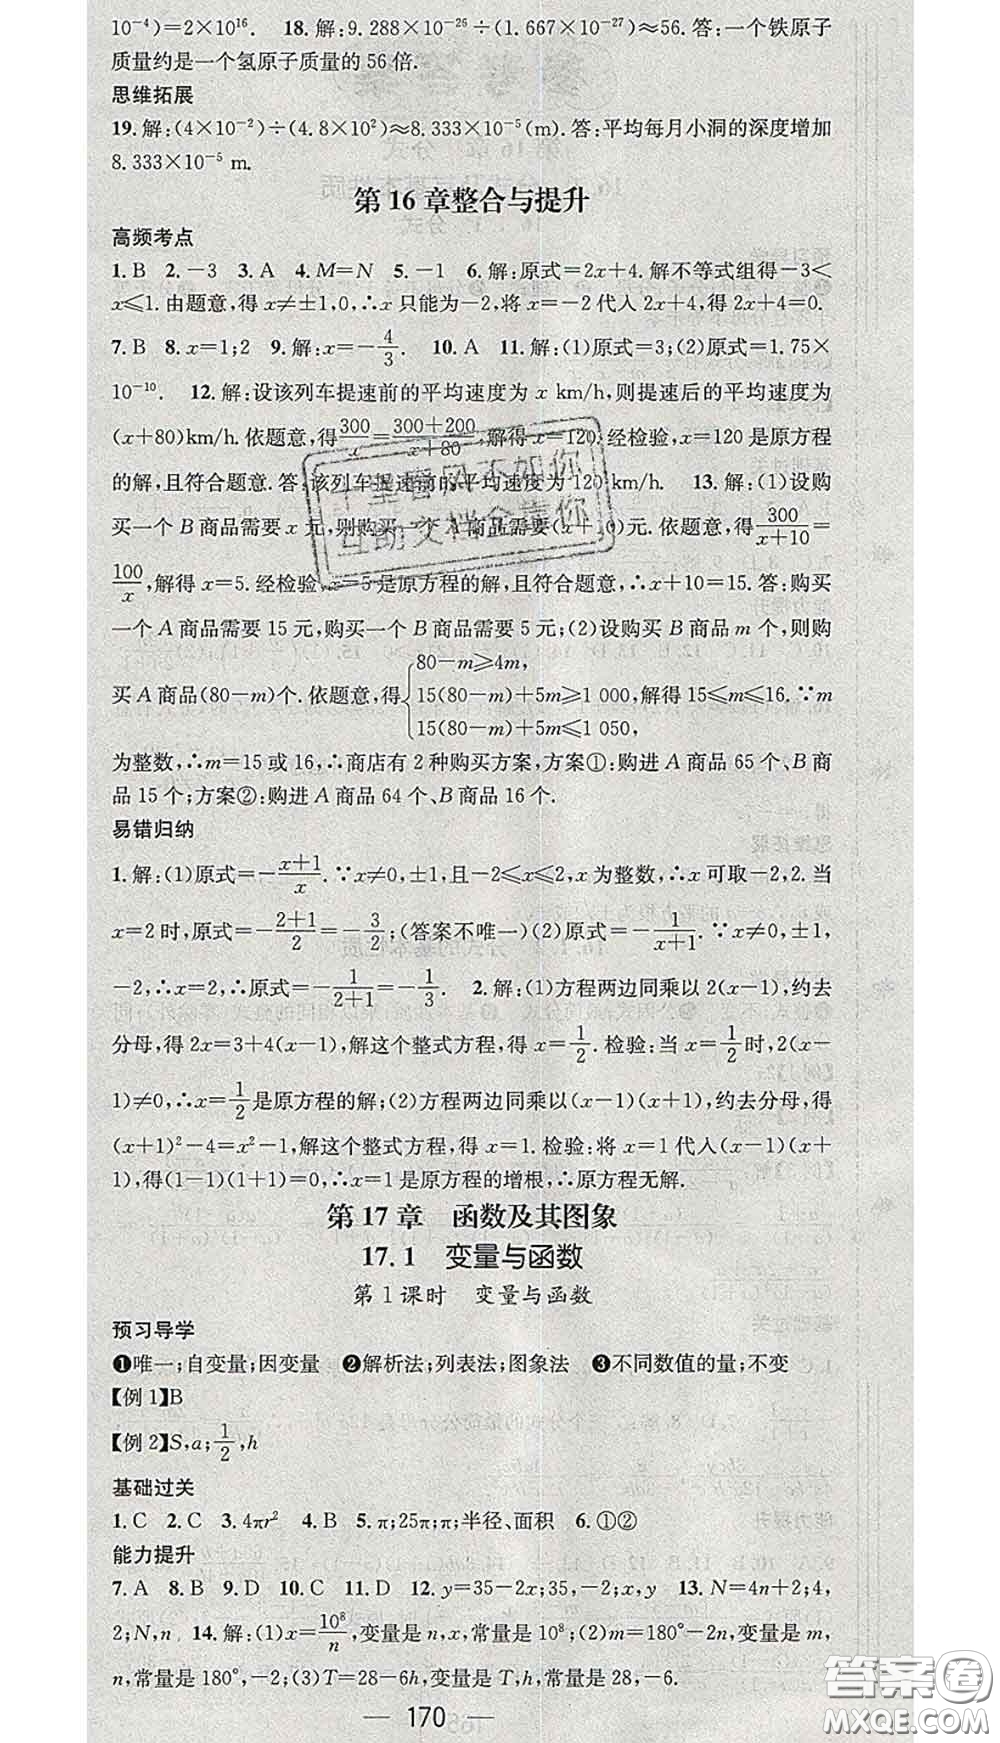 10⁻⁴)=2×10¹⁶. 18.解:9.288×10⁻²⁶÷(1.667×10⁻²⁷)≈56.答:一个铁原子
质量约是一个氢原子质量的56倍.
思维拓展
19.解:(4×10⁻²)÷(4.8×10²)≈8.333×10⁻⁵(m).答:平均每月小洞的深度增加
8.333×10⁻⁵ m.
第16章整合与提升
高频考点
1.B 2.-3 3.A 4.M=N 5.-1 6.解:原式=2x+4.解不等式组得-3<
x≤1.由题意,得x≠±1,0,∴x只能为-2,将x=-2代入2x+4,得2x+4=0.
7.B 8.x=1;2 9.解:x=-4/3. 10.A 11.解:(1)原式=3;(2)原式=1.75×
10⁻¹⁰. 12.解:设该列车提速前的平均速度为x km/h,则提速后的平均速度为
(x+80)km/h.依题意,得300/x=(300+200)/(x+80),解得x=120.经检验,x=120是原方程
的解,且符合题意.答:该列车提速前的平均速度为120 km/h. 13.解:(1)设购
买一个B商品需要x元,则购买一个A商品需要(x+10)元.依题意,得300/(x+10)=
100/x,解得x=5.经检验,x=5是原方程的解,且符合题意,∴x+10=15.答:购买
一个A商品需要15元,购买一个B商品需要5元;(2)设购买B商品m个,则购
买A商品(80-m)个.依题意,得{80-m≥4m,
15(80-m)+5m≥1 000,解得15≤m≤16.∵m
15(80-m)+5m≤1 050,
为整数,∴m=15或16,∴商店有2种购买方案,方案①:购进A商品65个、B商
品15个;方案②:购进A商品64个、B商品16个.
易错归纳
1.解:(1)原式=-(x+1)/x.∵x≠0,±1,且-2≤x≤2,x为整数,∴x可取-2,2.当
x=2时,原式=-(2+1)/2=-3/2;(答案不唯一)(2)原式=-1/(x+1).∵x≠0,±1,
-2,∴x=2,∴原式=-1/(2+1)=-1/3. 2.解:(1)方程两边同乘以2(x-1),约去
分母,得2x=3+4(x-1),解这个整式方程,得x=1/2.检验:当x=1/2时,2(x-
1)≠0,∴x=1/2是原方程的解;(2)方程两边同乘以(x-1)(x+1),约去分母,得
(x+1)²-4=x²-1,解这个整式方程,得x=1.检验:将x=1代入(x-1)(x+
1),得(1-1)(1+1)=0,∴x=1是原方程的增根,∴原方程无解.
第17章 函数及其图象
17.1 变量与函数
第1课时 变量与函数
预习导学
❶唯一;自变量;因变量 ❷解析法;列表法;图象法 ❸不同数值的量;不变
【例1】B
【例2】S,a;1/2,h
基础过关
1.C 2.C 3.4πr² 4.B 5.π;25π;π;半径、面积 6.①②
能力提升
7.A 8.B 9.D 10.C 11.D 12.y=35-2x;35,-2;x,y 13.N=4n+2;4,
2;N,n 14.解:(1)x=10⁸/n,变量是n,x,常量是10⁸;(2)m=180°-2n,变量是m,
n,常量是180°,-2;(3)T=28-6h,变量是T,h,常量是28,-6.
— 170 —
千里春风不如你
互助文档全靠你
答案圈
MXQE.COM